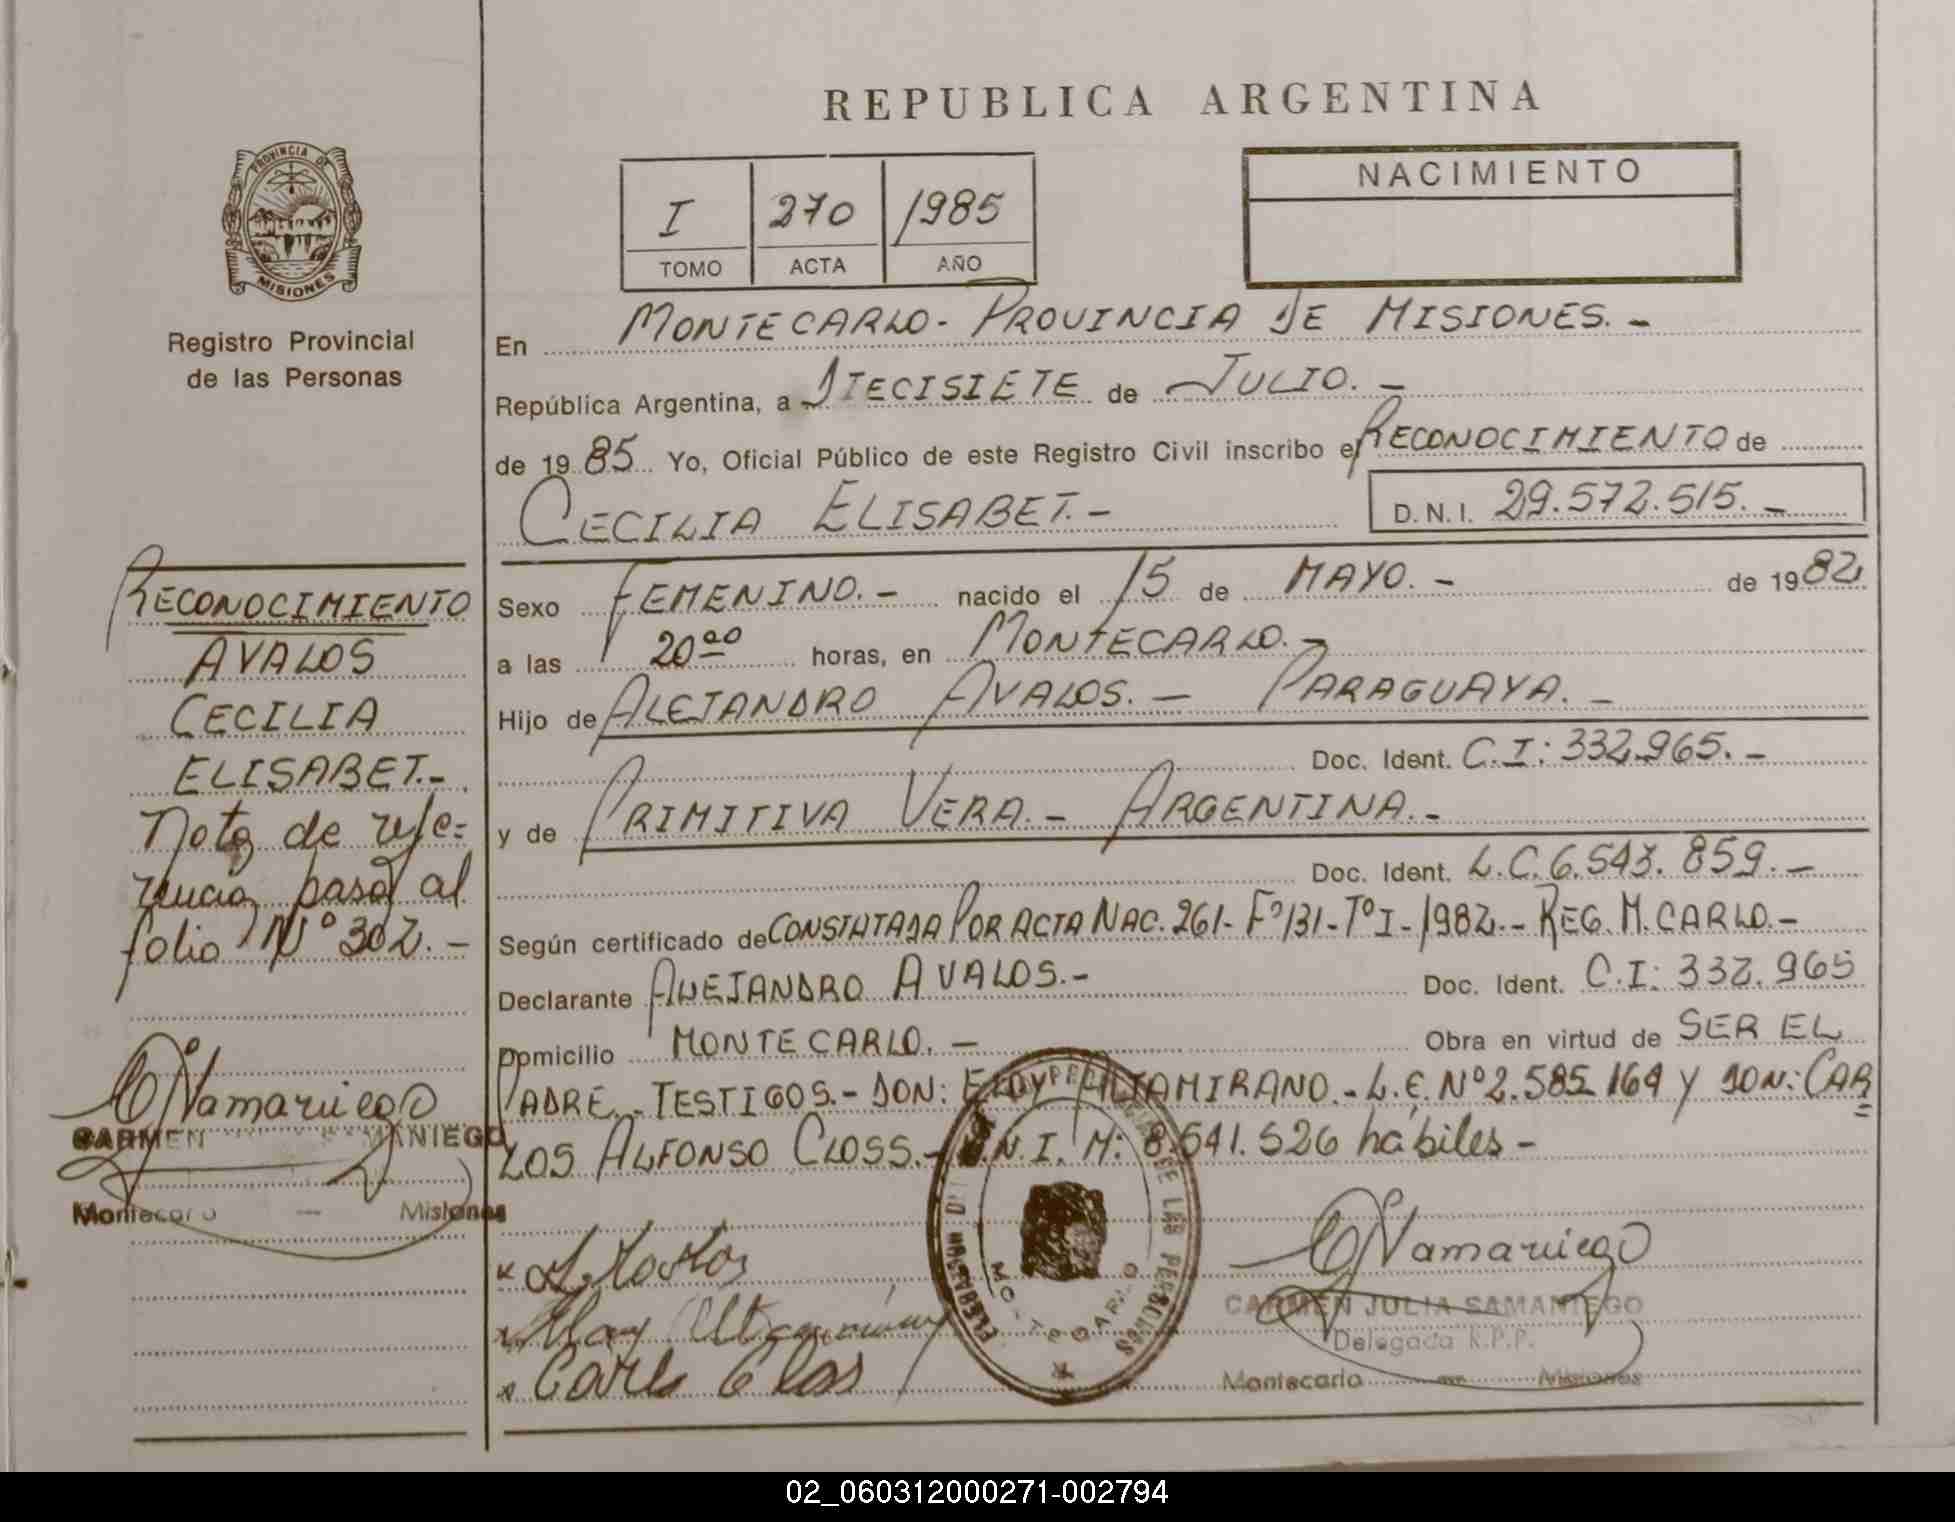 REPUBLICA ARGENTINA
PROVINCIA DE
MISIONES
Registro Provincial
de las Personas
I 270 1985
TOMO ACTA AÑO
NACIMIENTO
En MONTECARLO - PROVINCIA DE MISIONES. -
República Argentina, a DIECISIETE de JULIO. -
de 1985 Yo, Oficial Público de este Registro Civil inscribo el RECONOCIMIENTO de
CECILIA ELISABET. - D.N.I. 29.572.515. -
Sexo FEMENINO. - nacido el 15 de MAYO. - de 1982
a las 20 00 horas, en MONTECARLO. -
Hijo de ALEJANDRO AVALOS. - PARAGUAYA. -
Doc. Ident. C.I: 332.965. -
y de PRIMITIVA VERA. - ARGENTINA. -
Doc. Ident. L.C. 6.543.859. -
Según certificado de CONSTATADA POR ACTA NAC. 261 - Fº 131 - Tº I - 1982. - REG. M. CARLO. -
Declarante ALEJANDRO AVALOS. - Doc. Ident. C.I: 332.965
Domicilio MONTECARLO. - Obra en virtud de SER EL
PADRE. - TESTIGOS. - DON: ELOY ALTAMIRANO. - L.E. Nº 2.585.164 Y DON: CAR
LOS ALFONSO CLOSS. - D.N.I. M: 8.541.526 hábiles -
CARMEN JULIA SAMANIEGO
Delegada R.P.P.
Montecarlo — Misiones
RECONOCIMIENTO
AVALOS
CECILIA
ELISABET. -
Nota de refe=
rencia pasa al
folio Nº 302. -
CARMEN SAMANIEGO
Montecarlo — Misiones
02_060312000271-002794